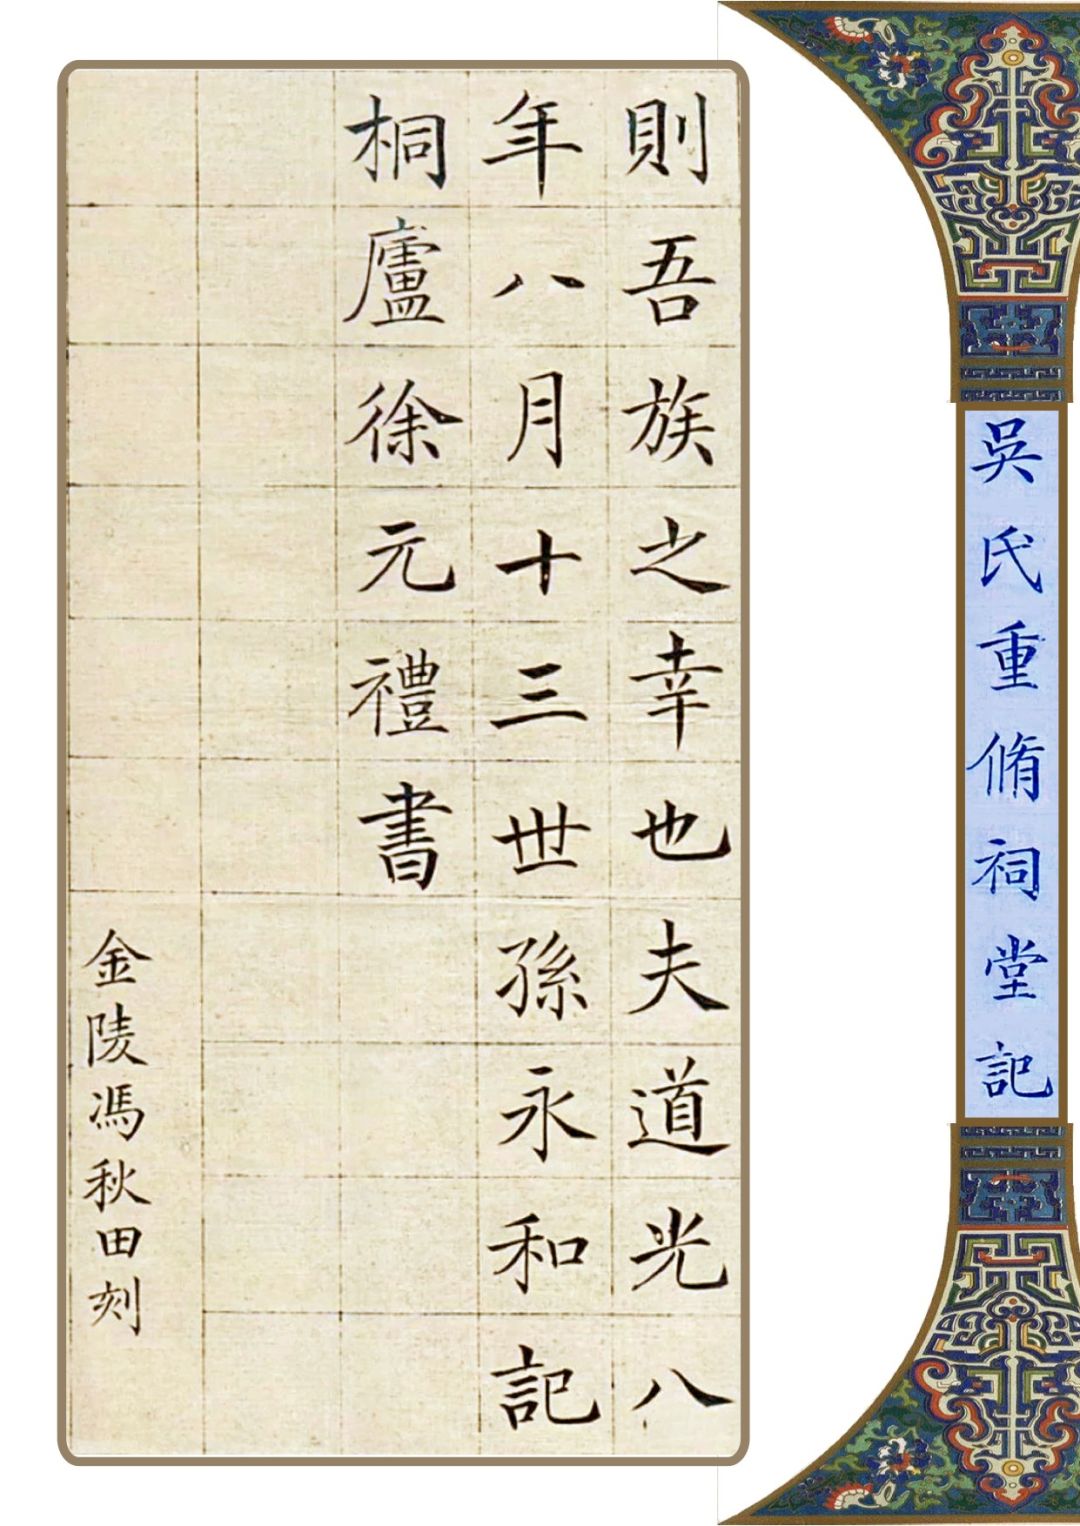 吳氏重脩祠堂記
則吾族之幸也夫道光八
年八月十三世孫永和記
桐廬徐元禮書
金陵馮秋田刻